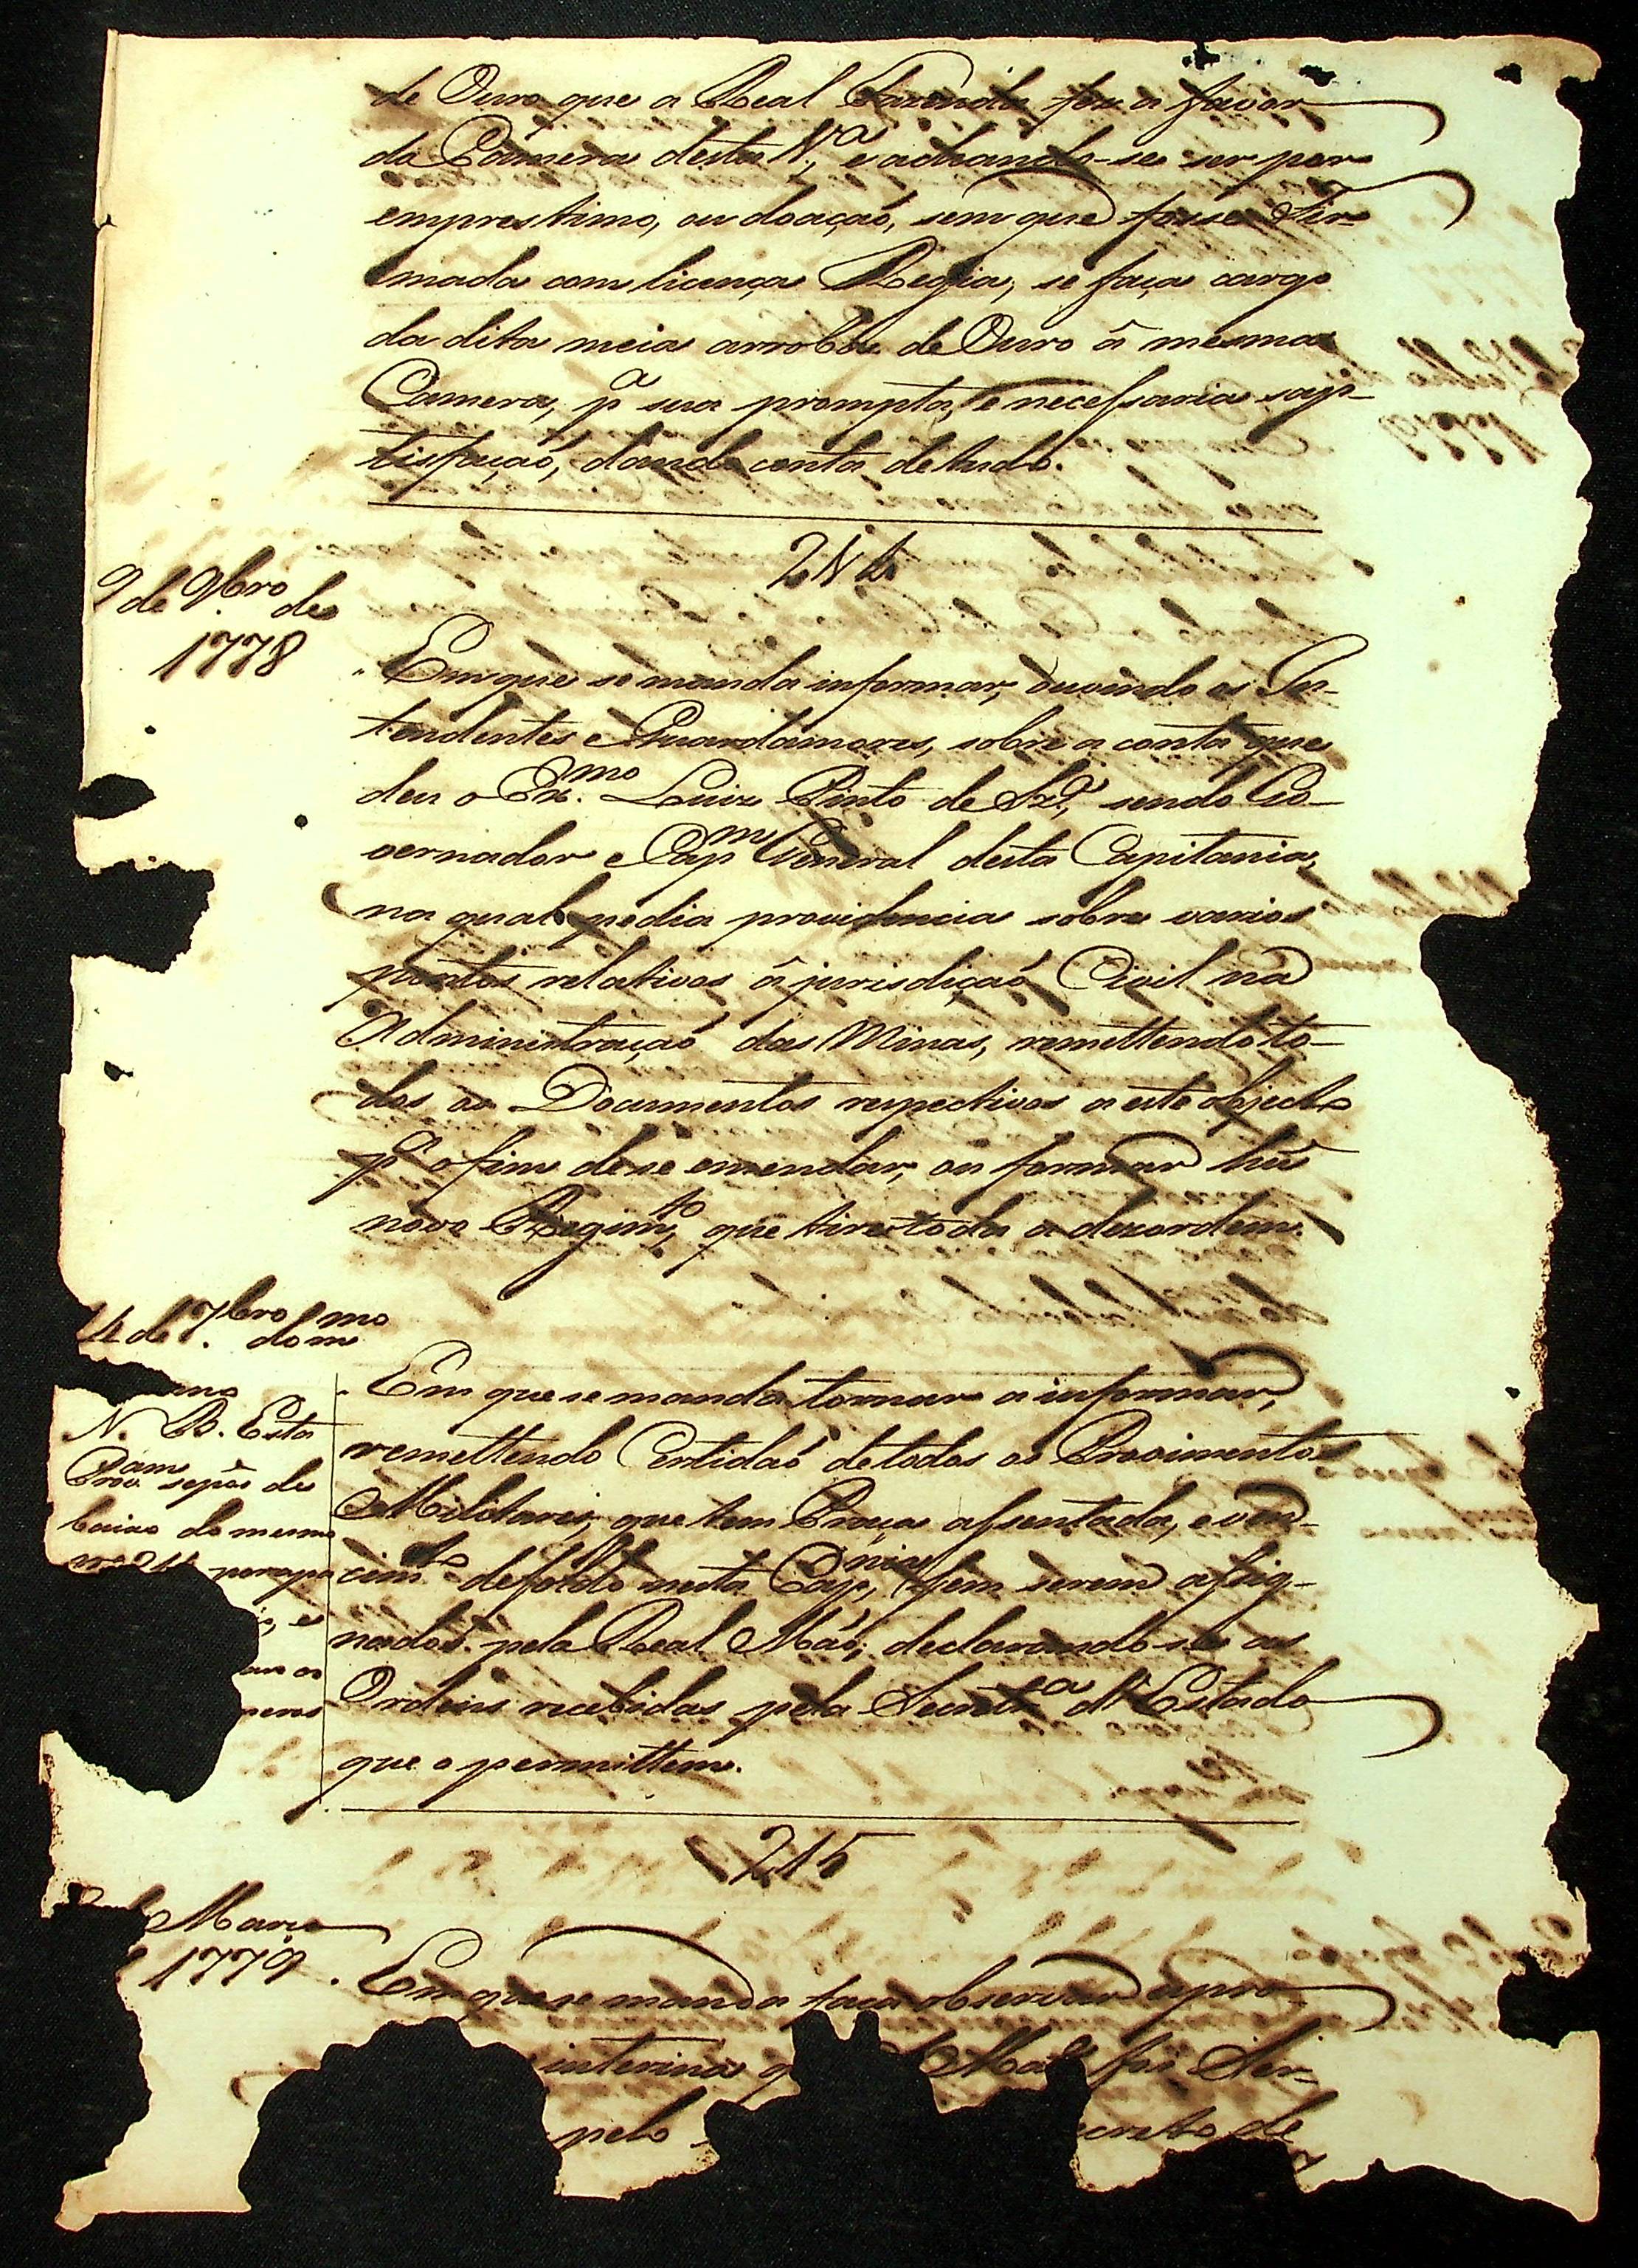 de Ouro que a Real Fazenda fez a favor
da Camera desta V.ª, e achando-se ser por
emprestimo, ou doaçaõ, sem que fosse fir-
mada com licença Regia, se faça cargo
da dita meia arroba de Ouro â mesma
Camera, pª sua prompta, e necessaria sap-
tisfaçaõ, dando conta de tudo.
214
9 de 9bro de
1778
Em que se manda informar, ouvindo os In-
tendentes e Guardamores, sobre a conta que
deu o Ex.mo Luiz Pinto de Sz.ª, sendo Go-
vernador e Capm General desta Capitania,
na qual pedia providencia sobre varios
pontos relativos â jurisdiçaõ Civil na
Administraçaõ das Minas, remettendo to-
dos os Documentos respectivos a este objecto
pª o fim de se emendar, ou formar hũ
novo Regimto, que tire toda a dezordem.
14 de 7bro do mmo
anno
N. B. Esta
Provam se pôs de
baixo do mesmo
nº 214 por
is, e
os
meros
Em que se manda tornar a informar,
remettendo Certidaõ de todos os Provimentos
Militares, que tem Praça assentada, e ven-
cimto de soldo nesta Capnia, sem serem assig-
nados pela Real Maõ; declarando-se as
Ordens recebidas pela Secretrª d'Estado
que o permittem.
215
de Março
1779.
Em que se manda faça observar a pro-
interina q Mage foi Ser-
pelo ecreto de